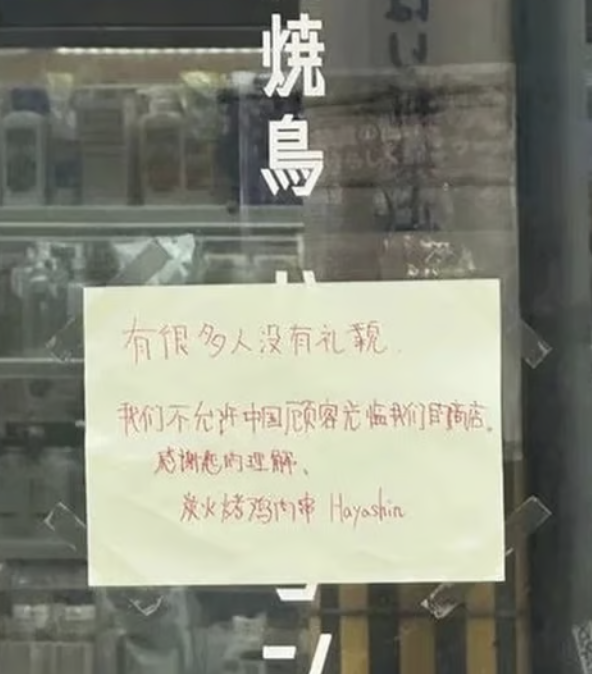 焼鳥
有很多人没有礼貌.
我们不允许中国顾客光临我们的商店。
感谢您的理解、
炭火烤鸡肉串 Hayashin
ン